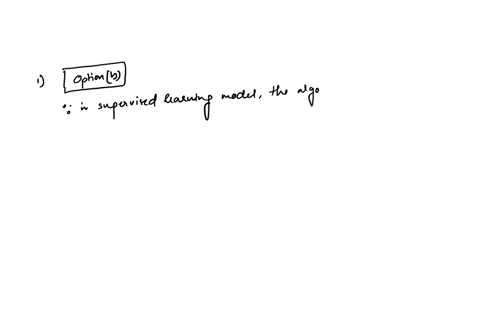 1) Option(b)
∵ in supervised learning model, the algo